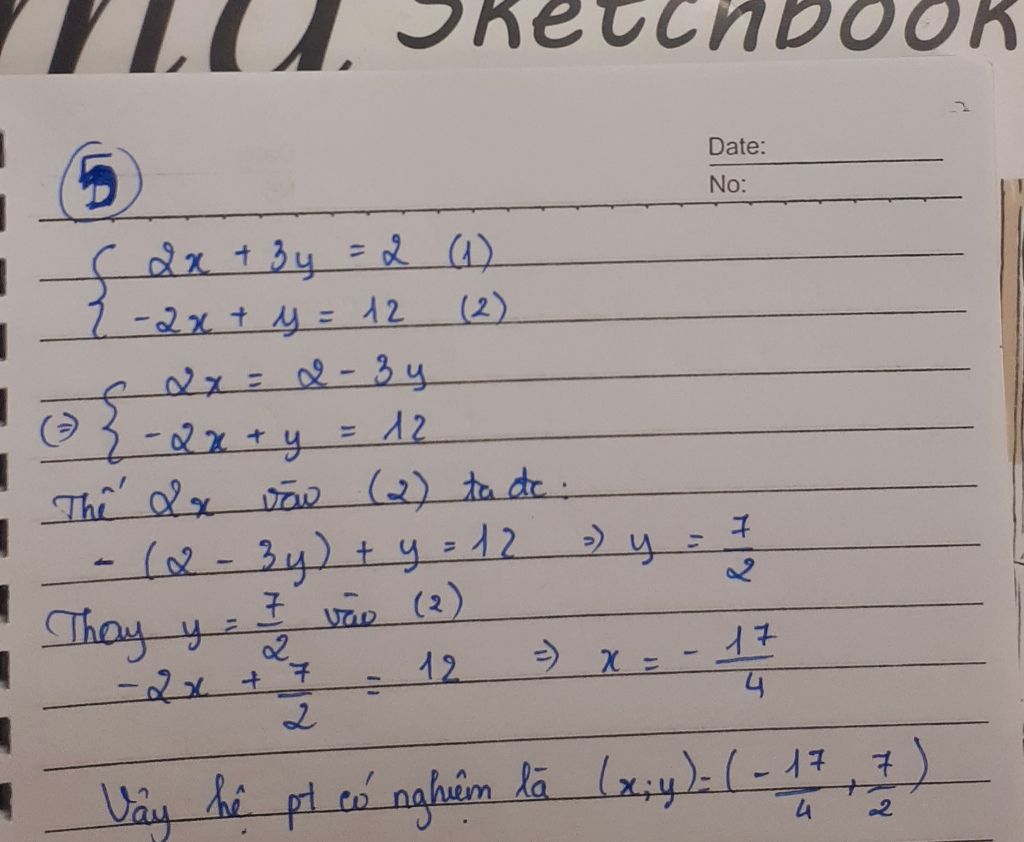 Sketchbook
Date:
No:
5
2x + 3y = 2 (1)
-2x + y = 12 (2)
2x = 2 - 3y
(=) -2x + y = 12
Thế 2x vào (2) ta dc:
- (2 - 3y) + y = 12 => y = 7/2
Thay y = 7/2 vào (2)
-2x + 7/2 = 12 => x = - 17/4
Vậy hệ pt có nghiệm là (x;y)=(- 17/4, 7/2)